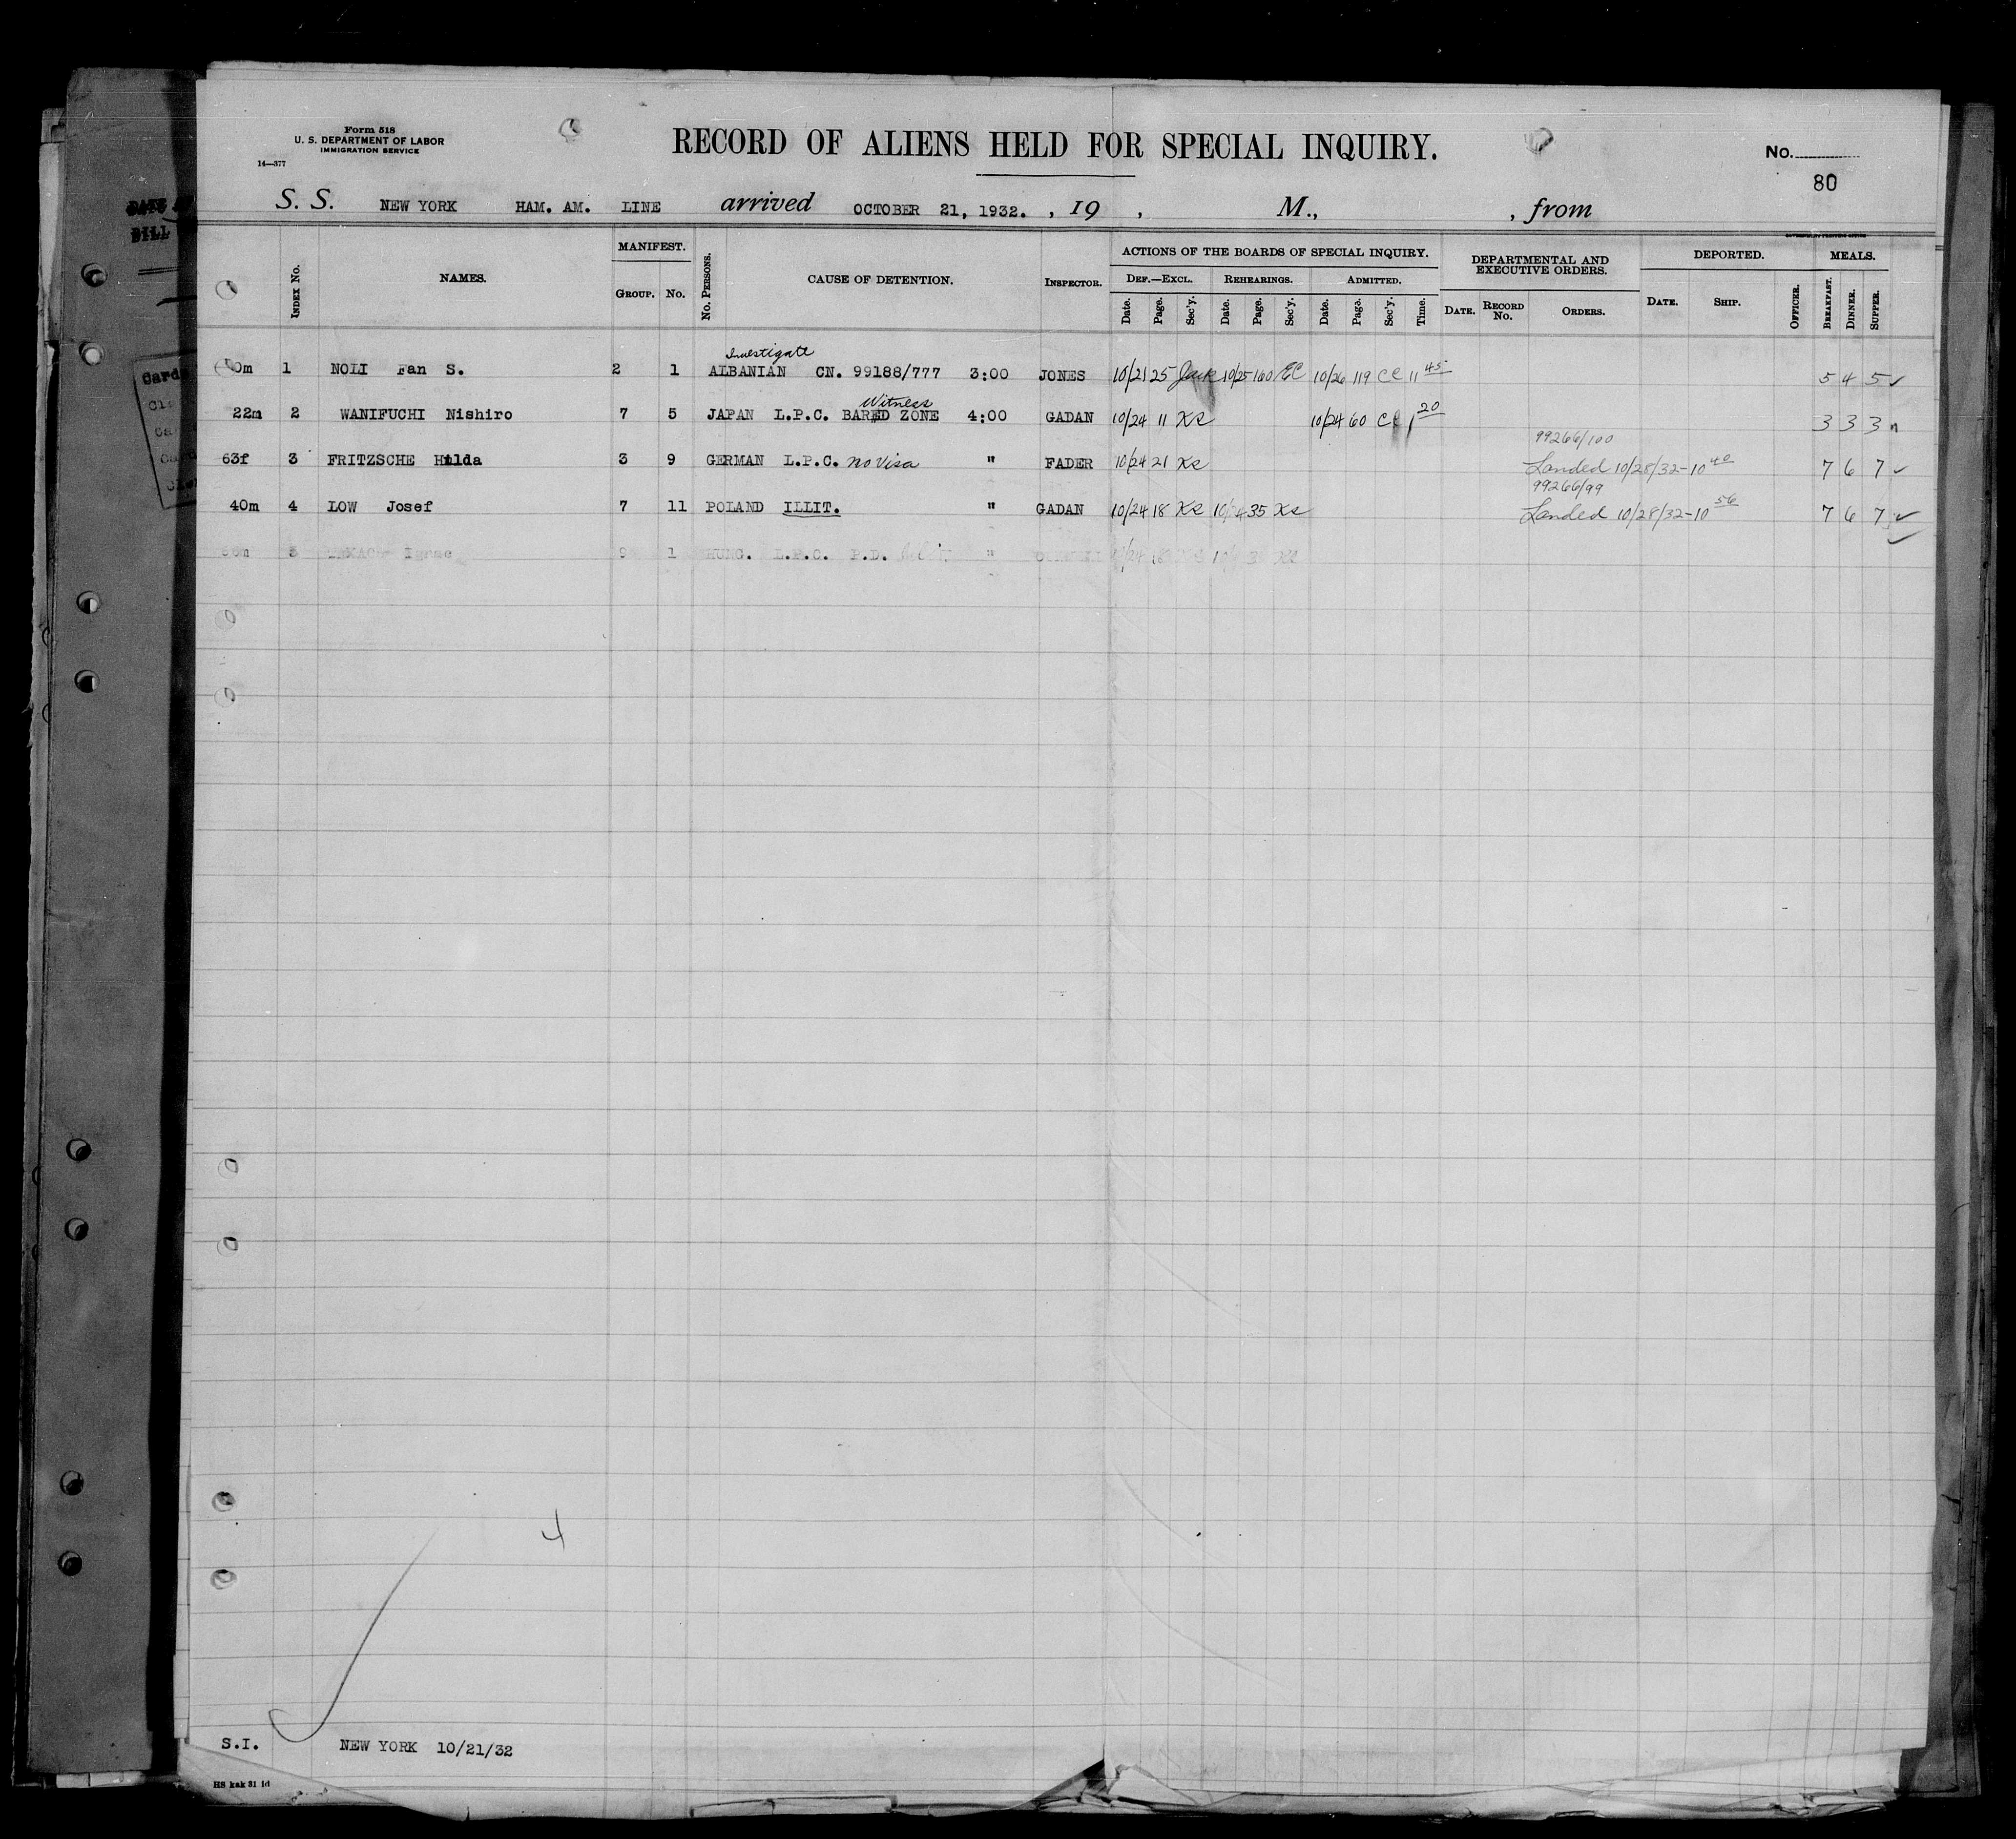 Form 518
U. S. DEPARTMENT OF LABOR
IMMIGRATION SERVICE
14—377
RECORD OF ALIENS HELD FOR SPECIAL INQUIRY.
No.
80
S. S. NEW YORK HAM. AM. LINE arrived OCTOBER 21, 1932. , 19 , M., , from
BILL
INDEX NO. NAMES. MANIFEST. GROUP. NO. NO. PERSONS. CAUSE OF DETENTION. INSPECTOR. ACTIONS OF THE BOARDS OF SPECIAL INQUIRY. DEF.—EXCL. Date. Page. Sec'y. REHEARINGS. Date. Page. Sec'y. ADMITTED. Date. Page. Sec'y. Time. DEPARTMENTAL AND EXECUTIVE ORDERS. DATE. RECORD NO. ORDERS. DEPORTED. DATE. SHIP. OFFICER. MEALS. BREAKFAST. DINNER. SUPPER.
Investigate
0m 1 NOLI Fan S. 2 1 ALBANIAN CN. 99188/777 3:00 JONES 10/21 25 10/25 160 EC 10/26 119 CC 11 45 5 4 5 ✓
Witness
22m 2 WANIFUCHI Nishiro 7 5 JAPAN L.P.C. BARED ZONE 4:00 GADAN 10/24 11 Ks 10/24 60 CC 1 20 3 3 3
99266/100
63f 3 FRITZSCHE Hilda 3 9 GERMAN L.P.C. no visa " FADER 10/24 21 Ks Landed 10/28/32-10 40 7 6 7 ✓
99266/99
40m 4 LOW Josef 7 11 POLAND ILLIT. " GADAN 10/24 18 Ks 35 Ks Landed 10/28/32-10 56 7 6 7 ✓
9 1 HUNG. L.P.C. P.D. "
4
S.I. NEW YORK 10/21/32
HS kak 31 1d